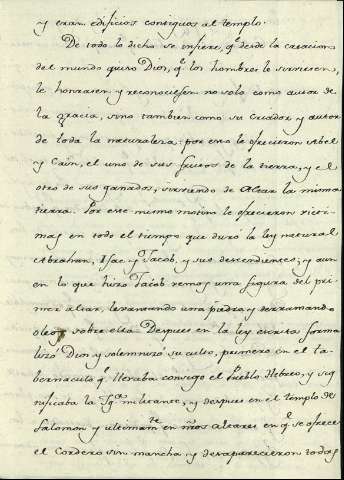 y eran edificios contiguos al templo.
De todo lo dicho se infiere, q.e desde la creacion
del mundo quiso Dios, q.e los hombres le sirviesen,
le honrasen y reconociesen no solo como autor de
la gracia, sino tambien como su Criador y autor
de toda la naturaleza: por esto le ofrecieron Abel
y Cain, el uno de sus frutos de la tierra, y el
otro de sus ganados, sirviendo de Altar la misma
tierra. Por este mismo motivo le ofrecieron victi-
mas en todo el tiempo que duró la ley natural
Abrahan, Isac y Jacob, y sus descendientes; y aun
en lo que hizo Jacob vemos una figura del pri-
mer altar, levantando una piedra y derramando
oleo sobre ella. Despues en la ley escrita forma
lizó Dios y solemnizó su culto, primero en el ta-
bernaculo q.e llevaba consigo el Pueblo Hebreo, y sig
nificaba la Ig.a militante, y despues en el templo de
Salomon y ultimam.te en n̄ros Altares en q.e se ofrece
el Cordero sin mancha y desaparecieron todas